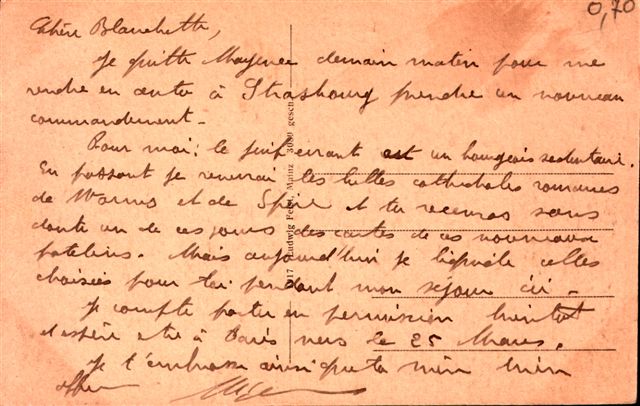 0,70
Chère Blanchette,
Je quitte Mayence demain matin pour me
rendre en auto à Strasbourg prendre un nouveau
commandement.
Pour moi: le juif errant est un bourgeois sédentaire.
En passant je reverrai les belles cathédrales romanes
de Worms et de Spire et tu recevras sans
doute un de ces jours des cartes de ces nouveaux
patelins. Mais aujourd'hui je liquide celles
choisies pour toi pendant mon séjour ici.
Je compte partir en permission bientôt
et espère être à Paris vers le 25 Mars.
Je t'embrasse ainsi que ta mère bien
917 Ludwig Feist, Mainz 3080 gesch.